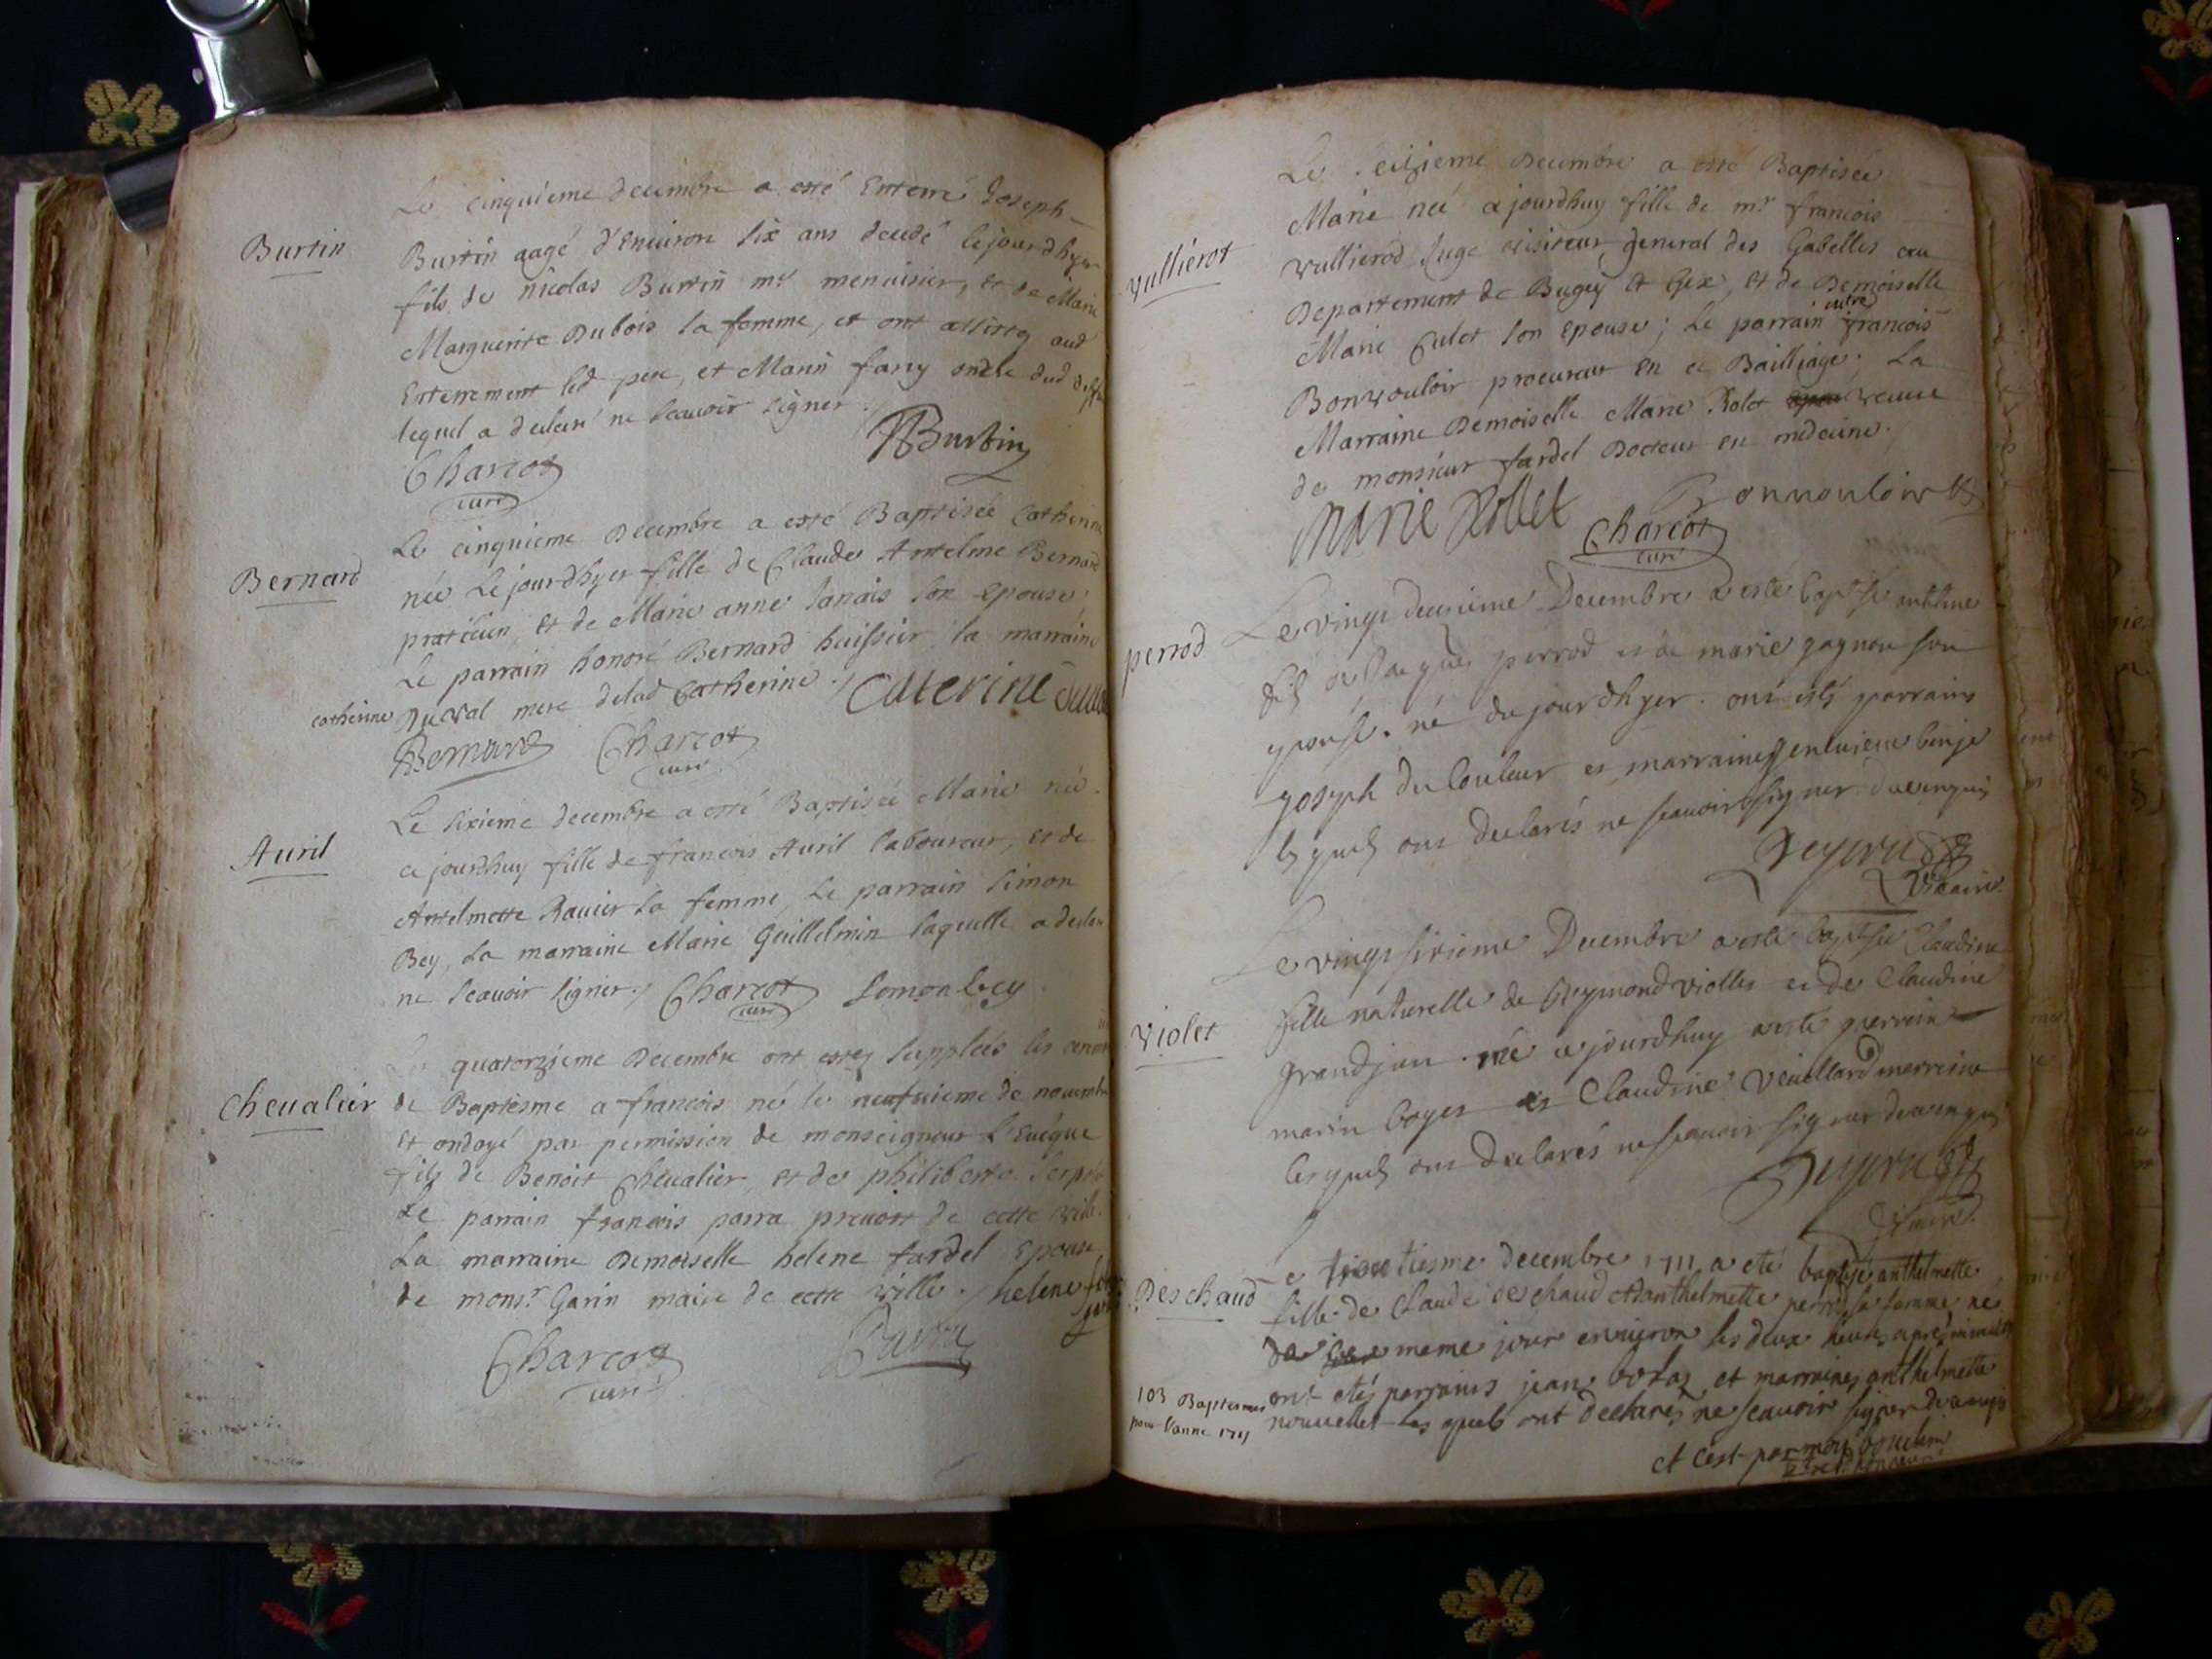 Burtin
Le cinquieme decembre a esté Enterré Joseph
Burtin aagé d'Enuiron six ans decedé le jourdhyer
fils de nicolas Burtin mre menuisier, et de Marie
Marguerite Dubois sa femme, et ont assisté aud
Enterrement led pere, et Marin fany oncle dud
lequel a declaré ne scauoir signer.
Burtin
Charcot
curé
Bernard
Le cinquieme Decembre a esté Baptisée Catherine
née Le jourdhyer fille de Claude Antelme Bernard
praticien, et de Marie anne Janais son Epouse,
Le parrain honoré Bernard huissier, la marraine
catherine Duval mere delad Catherine. / Caterine
Bernard Charcot
curé
Auril
Le sixieme decembre a esté Baptisée Marie née
ce jourdhuy fille de francois Auril laboureur, et de
Antelmette Rauier sa femme, Le parrain Simon
Bey, La marraine Marie Guillelmin laquelle a declaré
ne scauoir signer. / Charcot Simon bey
curé
Cheualier
Le quatorzieme Decembre ont estez supplées les
de Baptesme a francois né le neufuieme de nouembre
et ondoyé par permission de monseigneur L'Euéque
fils de Benoit Cheualier, et de philiberte
Le parrain francois parra preuost de cette ville
La marraine Demoiselle helene fardel Epouse
de monsr. Garin maire de cette ville. / helene
Charcot Parra
curé
Vullierot
Le seizieme Decembre a esté Baptisée
Marie née ajourdhuy fille de mr. francois
vullierod Juge visiteur general des Gabelles au
Departement de Bugey et Gex, et de Demoiselle
Marie Culet son Epouse; Le parrain francois
Bonvouloir procureur en ce Bailliage; La
Marraine Demoiselle Marie Rolet veuue
de monsieur fardel Docteur en medecine.
Marie Rollet Bonvouloir
Charcot
curé
perrod
Le vingt deuxieme Decembre a esté baptisé anthlme
fils de Jacques perrod et de marie gagnon son
epouse. né du jourdhyer. ont estés parrains
joseph du Couleur et marraine
lesquels ont declarés ne scauoir signer
vicaire
Violet
Le vingt sixieme Decembre a esté baptisée Claudine
fille naturelle de Reymond viollet et de Claudine
grandjan. née ajourdhuy a esté parrain
marin boget et Claudine Veuillard marraine
lesquels ont declarés ne scauoir signer de ce enquis
vicaire
Deschaud
Le trentiesme decembre 1711 a eté baptisé anthelmette
fille de Claude deschaud et danthelmette perrin sa femme né
de ce meme jour enuiron les deux heures apres minuit
ont etés parrains jean et marraines anthelmette
nouuellet lesquels ont declarés ne scauoir signer de ce enquis
et cest par moy
103 Baptesmes
pour Lanne 1711